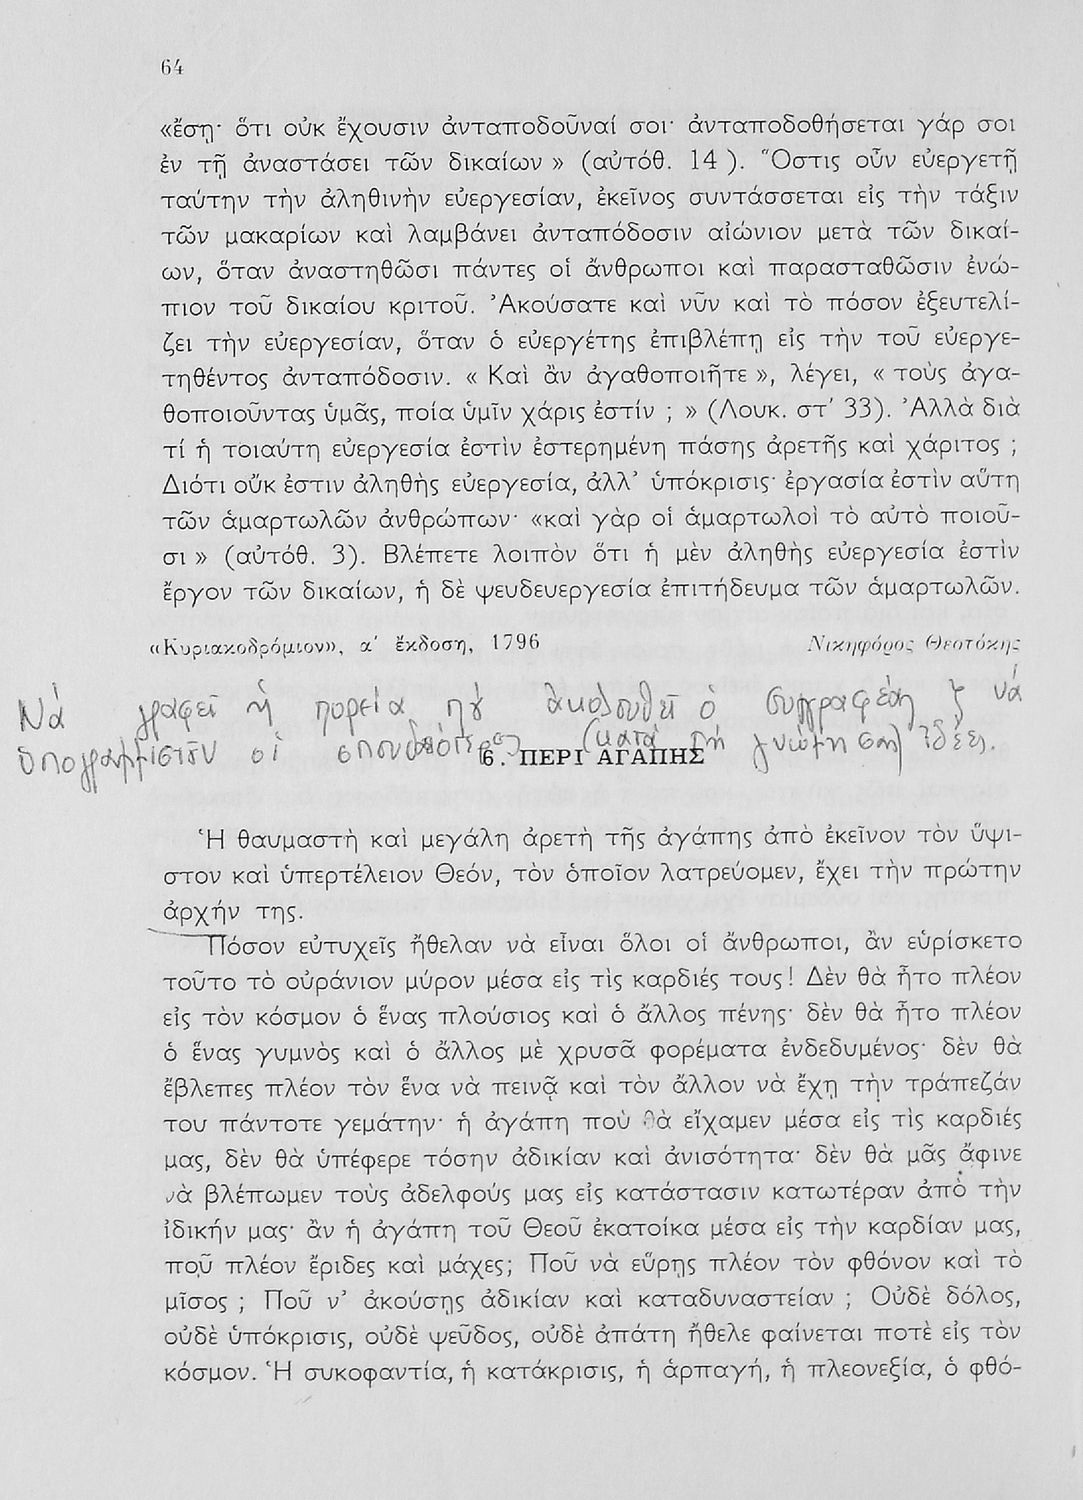 64
«ἔσῃ· ὅτι οὐκ ἔχουσιν ἀνταποδοῦναί σοι· ἀνταποδοθήσεται γάρ σοι
ἐν τῇ ἀναστάσει τῶν δικαίων» (αὐτόθ. 14). Ὅστις οὖν εὐεργετῇ
ταύτην τὴν ἀληθινὴν εὐεργεσίαν, ἐκεῖνος συντάσσεται εἰς τὴν τάξιν
τῶν μακαρίων καὶ λαμβάνει ἀνταπόδοσιν αἰώνιον μετὰ τῶν δικαί-
ων, ὅταν ἀναστηθῶσι πάντες οἱ ἄνθρωποι καὶ παρασταθῶσιν ἐνώ-
πιον τοῦ δικαίου κριτοῦ. Ἀκούσατε καὶ νῦν καὶ τὸ πόσον ἐξευτελί-
ζει τὴν εὐεργεσίαν, ὅταν ὁ εὐεργέτης ἐπιβλέπῃ εἰς τὴν τοῦ εὐεργε-
τηθέντος ἀνταπόδοσιν. «Καὶ ἂν ἀγαθοποιῆτε», λέγει, «τοὺς ἀγα-
θοποιοῦντας ὑμᾶς, ποία ὑμῖν χάρις ἐστίν ; » (Λουκ. στ' 33). Ἀλλὰ διὰ
τί ἡ τοιαύτη εὐεργεσία ἐστὶν ἐστερημένη πάσης ἀρετῆς καὶ χάριτος ;
Διότι οὔκ ἐστιν ἀληθὴς εὐεργεσία, ἀλλ' ὑπόκρισις· ἐργασία ἐστὶν αὕτη
τῶν ἁμαρτωλῶν ἀνθρώπων· «καὶ γὰρ οἱ ἁμαρτωλοὶ τὸ αὐτὸ ποιοῦ-
σι» (αὐτόθ. 3). Βλέπετε λοιπὸν ὅτι ἡ μὲν ἀληθὴς εὐεργεσία ἐστὶν
ἔργον τῶν δικαίων, ἡ δὲ ψευδευεργεσία ἐπιτήδευμα τῶν ἁμαρτωλῶν.
«Κυριακοδρόμιον», α' ἔκδοση, 1796 Νικηφόρος Θεοτόκης
Νά γραφεῖ ἡ πορεία πȣ́ ἀκολουθεῖ ὁ συγγραφέας νά
ὑπογραμμιστοῦν οἱ σπουδαιότερες (κατά τή γνώμη σας) ἰδέες.
6. ΠΕΡΙ ΑΓΑΠΗΣ
Ἡ θαυμαστὴ καὶ μεγάλη ἀρετὴ τῆς ἀγάπης ἀπὸ ἐκεῖνον τὸν ὕψι-
στον καὶ ὑπερτέλειον Θεόν, τὸν ὁποῖον λατρεύομεν, ἔχει τὴν πρώτην
ἀρχήν της.
Πόσον εὐτυχεῖς ἤθελαν νὰ εἶναι ὅλοι οἱ ἄνθρωποι, ἂν εὑρίσκετο
τοῦτο τὸ οὐράνιον μύρον μέσα εἰς τὶς καρδιές τους! Δὲν θὰ ἦτο πλέον
εἰς τὸν κόσμον ὁ ἕνας πλούσιος καὶ ὁ ἄλλος πένης· δὲν θὰ ἦτο πλέον
ὁ ἕνας γυμνὸς καὶ ὁ ἄλλος μὲ χρυσᾶ φορέματα ἐνδεδυμένος· δὲν θὰ
ἔβλεπες πλέον τὸν ἕνα νὰ πεινᾷ καὶ τὸν ἄλλον νὰ ἔχῃ τὴν τράπεζάν
του πάντοτε γεμάτην· ἡ ἀγάπη ποὺ θὰ εἴχαμεν μέσα εἰς τὶς καρδιές
μας, δὲν θὰ ὑπέφερε τόσην ἀδικίαν καὶ ἀνισότητα· δὲν θὰ μᾶς ἄφινε
νὰ βλέπωμεν τοὺς ἀδελφούς μας εἰς κατάστασιν κατωτέραν ἀπὸ τὴν
ἰδικήν μας· ἂν ἡ ἀγάπη τοῦ Θεοῦ ἐκατοίκα μέσα εἰς τὴν καρδίαν μας,
ποῦ πλέον ἔριδες καὶ μάχες; Ποῦ νὰ εὕρῃς πλέον τὸν φθόνον καὶ τὸ
μῖσος ; Ποῦ ν' ἀκούσῃς ἀδικίαν καὶ καταδυναστείαν ; Οὐδὲ δόλος,
οὐδὲ ὑπόκρισις, οὐδὲ ψεῦδος, οὐδὲ ἀπάτη ἤθελε φαίνεται ποτὲ εἰς τὸν
κόσμον. Ἡ συκοφαντία, ἡ κατάκρισις, ἡ ἁρπαγή, ἡ πλεονεξία, ὁ φθό-